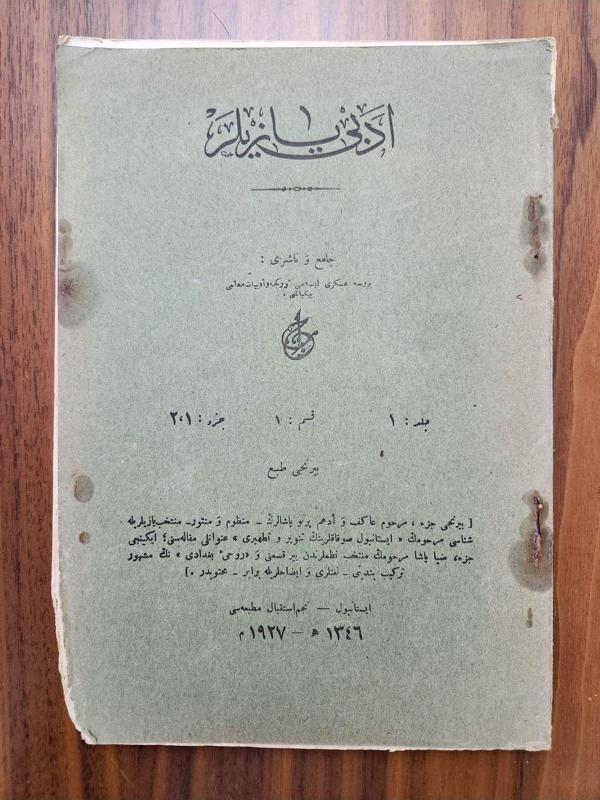 ادبی یازیلر
١
جامع و ناشری :
بروسه عسكری لیسه‌سی توركجه و ادبیات معلمی
بیكباشی ،
جلد : ١ قسم : ١ جزء : ٢،١
برنجی طبع
[ برنجی جزء ، مرحوم عاكف و أدهم پرتو پاشالرك ـ منظوم و منثور ـ منتخب یازیلریله
شناسی مرحومك « ایستانبول سوقاقلرینك تنویر و تطهیری » عنوانلی مقاله‌سنی؛ ایكینجی
جزء، ضیا پاشا مرحومك منتخب نظملرندن بیر قسمنی و «روحئ بغدادی » نك مشهور
تركیب بندینی ـ لغتلری و ایضاحلریله برابر ـ محتویدر . ]
ایستانبول — نجم استقبال مطبعه‌سی
١٣٤٦ ﻫ — ١٩٢٧ م